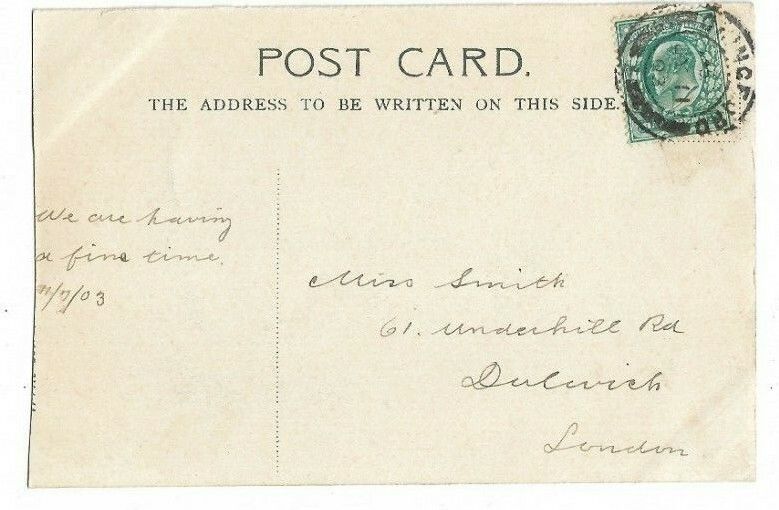 POST CARD.
THE ADDRESS TO BE WRITTEN ON THIS SIDE.
We are having
a fine time.
/03
Miss Smith
61. Underhill Rd
Dulwich
London